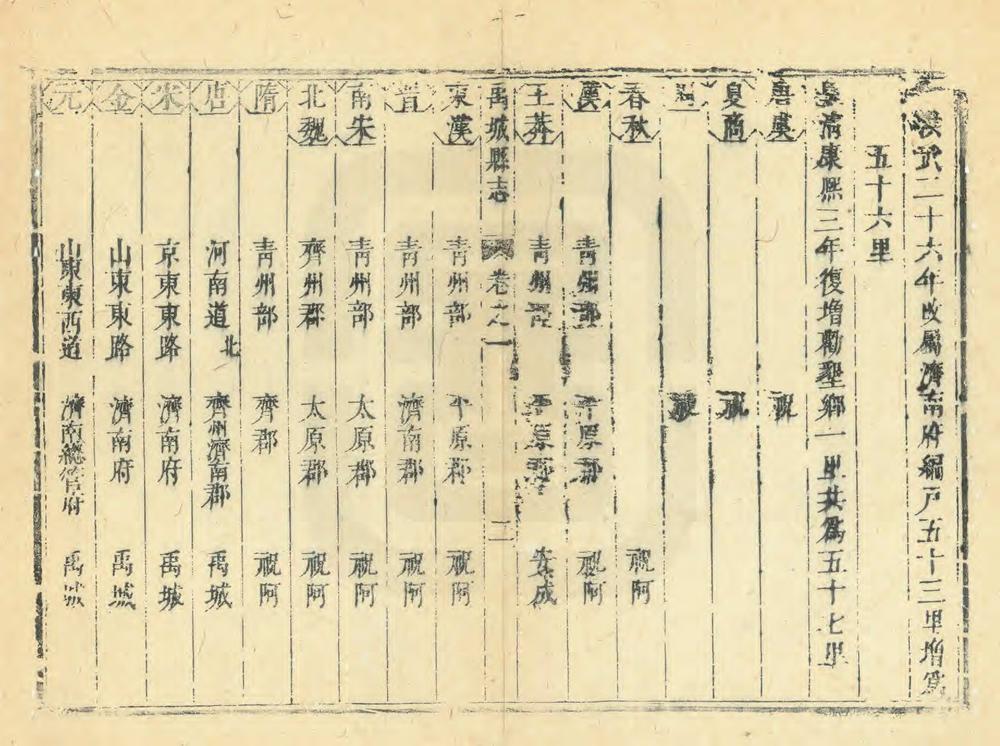 洪武二十六年改屬濟南府編戶五十三里增爲
五十六里
皇清康熙三年復增勸聖鄉一里共爲五十七里
唐虞 祝
夏商 祝
周 祝
春秋 祝阿
漢 靑州部 平原郡 祝阿
王莽 靑州部 平原郡 安成
禹城縣志 卷之一 二
東漢 靑州部 平原郡 祝阿
晉 靑州部 濟南郡 祝阿
南宋 靑州部 太原郡 祝阿
北魏 齊州郡 太原郡 祝阿
隋 靑州部 齊郡 祝阿
唐 河南道 齊州濟南郡 禹城
北
宋 京東東路 濟南府 禹城
金 山東東路 濟南府 禹城
元 山東東西道 濟南總管府 禹城